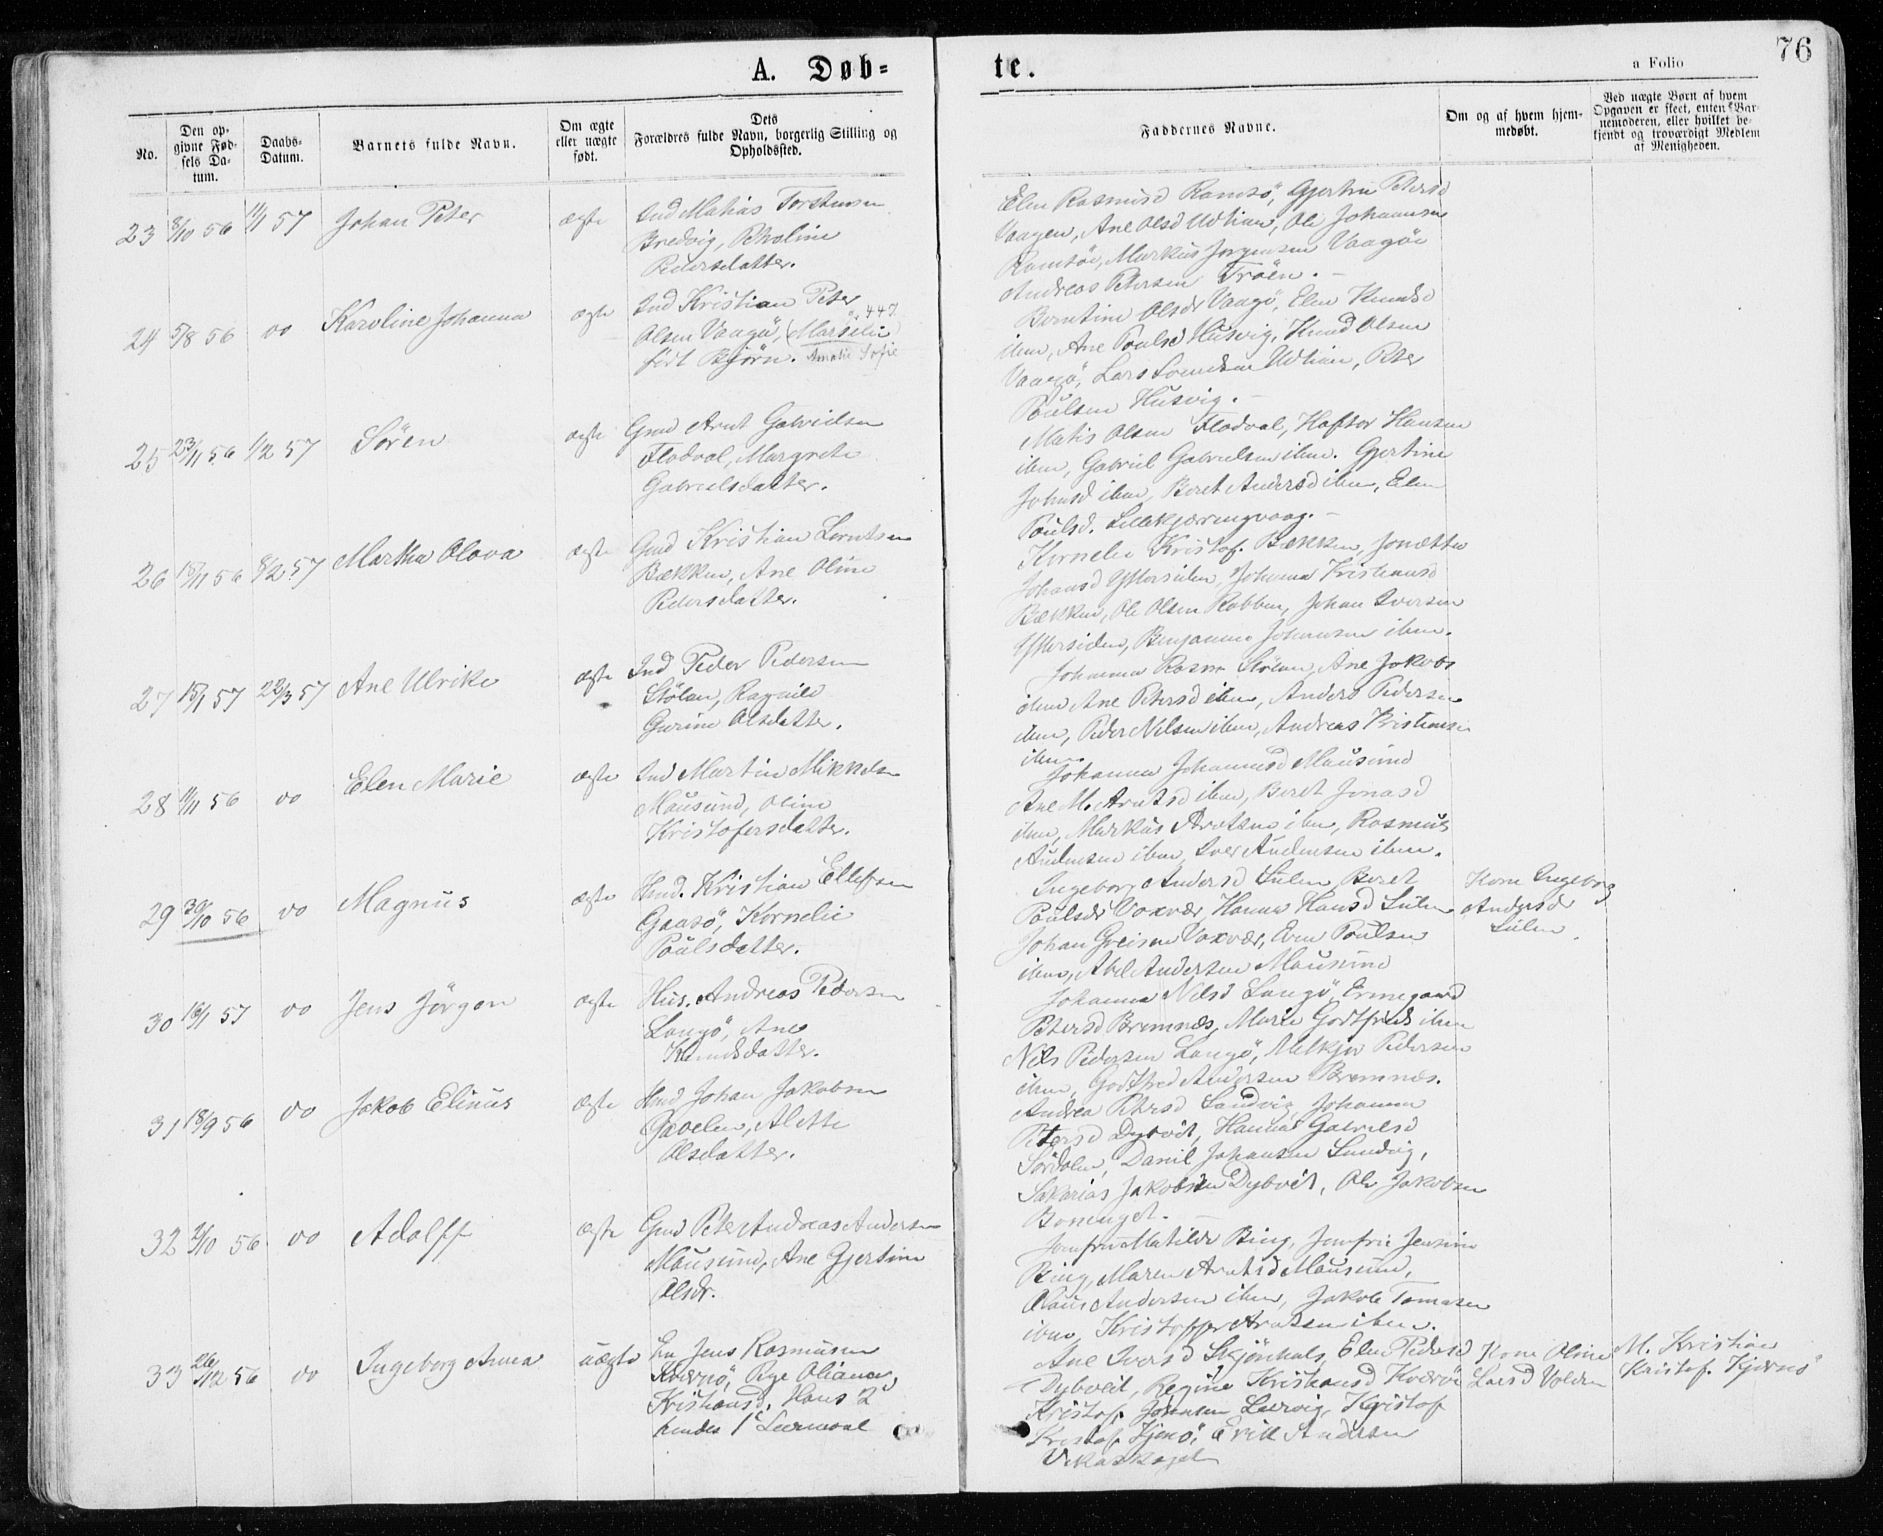 76
A. Døb=
te.
a Folio
No.
Den op-
givne Fød-
sels Da-
tum.
Daabs-
Datum.
Barnets fulde Navn.
Om ægte
eller uægte
født.
Dets
Forældres fulde Navn, borgerlig Stilling og
Opholdssted.
Faddernes Navne.
Om og af hvem hjem-
medøbt.
Ved uægte Børn af hvem
Opgaven er skeet, enten Bar-
nemoderen, eller hvilket be-
kjendt og troværdigt Medlem
af Menigheden.
23 8/10 56 11/1 57 Johan Peter ægte Ind Mathias Torstensen
Bredvig,
Pedersdatter.
Elen Rasmusd Ramsö, Gjertru Petersd
Vaagen, Ane Olsd Udtian, Ole Johansen
Ramsöe, Markus Jørgensen Vaagöe
Andreas Petersen Tröen. -
24 5/8 56 do Karoline Johanna ægte Ind Kristian Peter
Olsen Vaagö, (Marselie)
født Bjørn. Amalie Sofie
Berntine Olsdr Vaagö, Elen Knudsd
ibm, Ane Poulsd Husvig, Knud Olsen
Vaagö, Lars Svendsen Udtian, Peter
Poulsen Husvig. -
25 23/11 56 1/2 57 Søren ægte Gmd Arnt Gabrielsen
Flodval, Margrete
Gabrielsdatter.
Matis Olsen Flodval, Haftor Hansen
ibm, Gabriel Gabrielsen ibm. Gjertine
Johnsd ibm, Beret Andersd ibm, Elen
Poulsd. Lillekjæringvaag. -
26 15/11 56 8/2 57 Martha Olava ægte Gmd Kristian Lorntsen
Bækken, Ane Oline
Pedersdatter.
Kornelie Kristof. Bækken, Jonætte
Johansd Yttersiden, Johanna Kristiansd
Bækken, Ole Olsen Rabben, Johan Iversen
Yttersiden, Benjamin Johansen ibm.
27 15/1 57 22/3 57 Ane Ulrike ægte Ind Peder Pedersen
Stölan, Ragnild
Gurine Olsdatter.
Johanna Rasm Stölan, Ane Jakobs
ibm Ane Petersd ibm, Anders Pedersen
ibm, Peder Nilsen ibm, Andreas Kristiansen
ibm.
28 11/11 56 do Elen Marie ægte Ind Martin Mikkelsen
Mausund, Oline
Kristofersdatter.
Johanna Johannesd Mausund
Ane M. Arntsd ibm, Beret Jonasd
ibm, Markus Arntsen ibm, Rasmus
Audensen ibm, Iver Audensen ibm.
29 30/10 56 do Magnus ægte Hmd. Kristian Ellefsen
Gaasö, Kornelie
Poulsdatter.
Ingeborg Andersd Sulen, Beret
Poulsdr Voxvær, Hanna Hansd Sulen
Johan Greisen Voxvær, Even Poulsen
ibm, Abel Andersen Mausund
Kone Ingeborg
Andersdr
Sulen.
30 16/1 57 do Jens Jörgen ægte Hus. Andreas Pedersen
Langö, Ane
Knudsdatter.
Johanna Nilsd Langö, Ermegaard
Petersd Bremnæs, Marie Godtfreds ibm
Nils Pedersen Langö, Melkjor Pedersen
ibm, Godtfred Andersen Bremnæs.
31 18/9 56 do Jakob Elinus ægte Hmd Johan Jakobsen
Gavelen, Alette
Olsdatter.
Andrea Petersd Sandvig, Johanna
Petersd Dybvik, Hanna Gabrielsd
Sördolen, Danil Johansen Sundvig,
Sakarias Jakobsen Dybvik, Ole Jakobsen
Boninget. -
32 2/10 56 do Adolff ægte Gmd Peter Andreas Andersen
Mausund, Ane Gjertine
Olsdr.
Jomfru Matilde Bing, Jomfru Jensine
Bing, Maren Arntsd Mausund,
Olaus Andersen ibm, Jakob Tomasen
ibm, Kristoffer Arntsen ibm.
33 26/12 56 do Ingeborg Anna uægte En Jens Rasmusen
Kværnö, Pige Oliana
Kristiansd. Hans 2d
hendes 1e Leiermaal
Ane Iversd Skjönhals, Elen Pedersd
Dybvik, Regine Kristiansd Kværöe
Kristof. Johnsen Leervig, Kristof
Kristof. Kjærnö, Erik Andersen
Kone Oline
Larsd Volden
M. Kristian
Kristof. Kjærnö